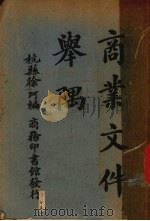 商業文件
舉隅
杭縣徐珂編 商務印書館發行